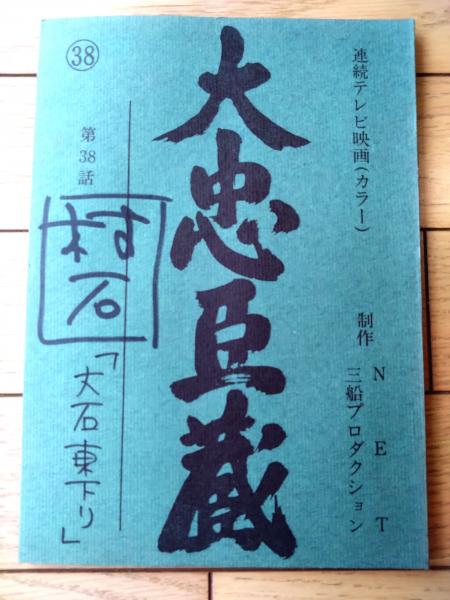 連続テレビ映画(カラー)
制作 NET
三船プロダクション
大忠臣蔵
㊳
第38話
村石
「大石東下り」